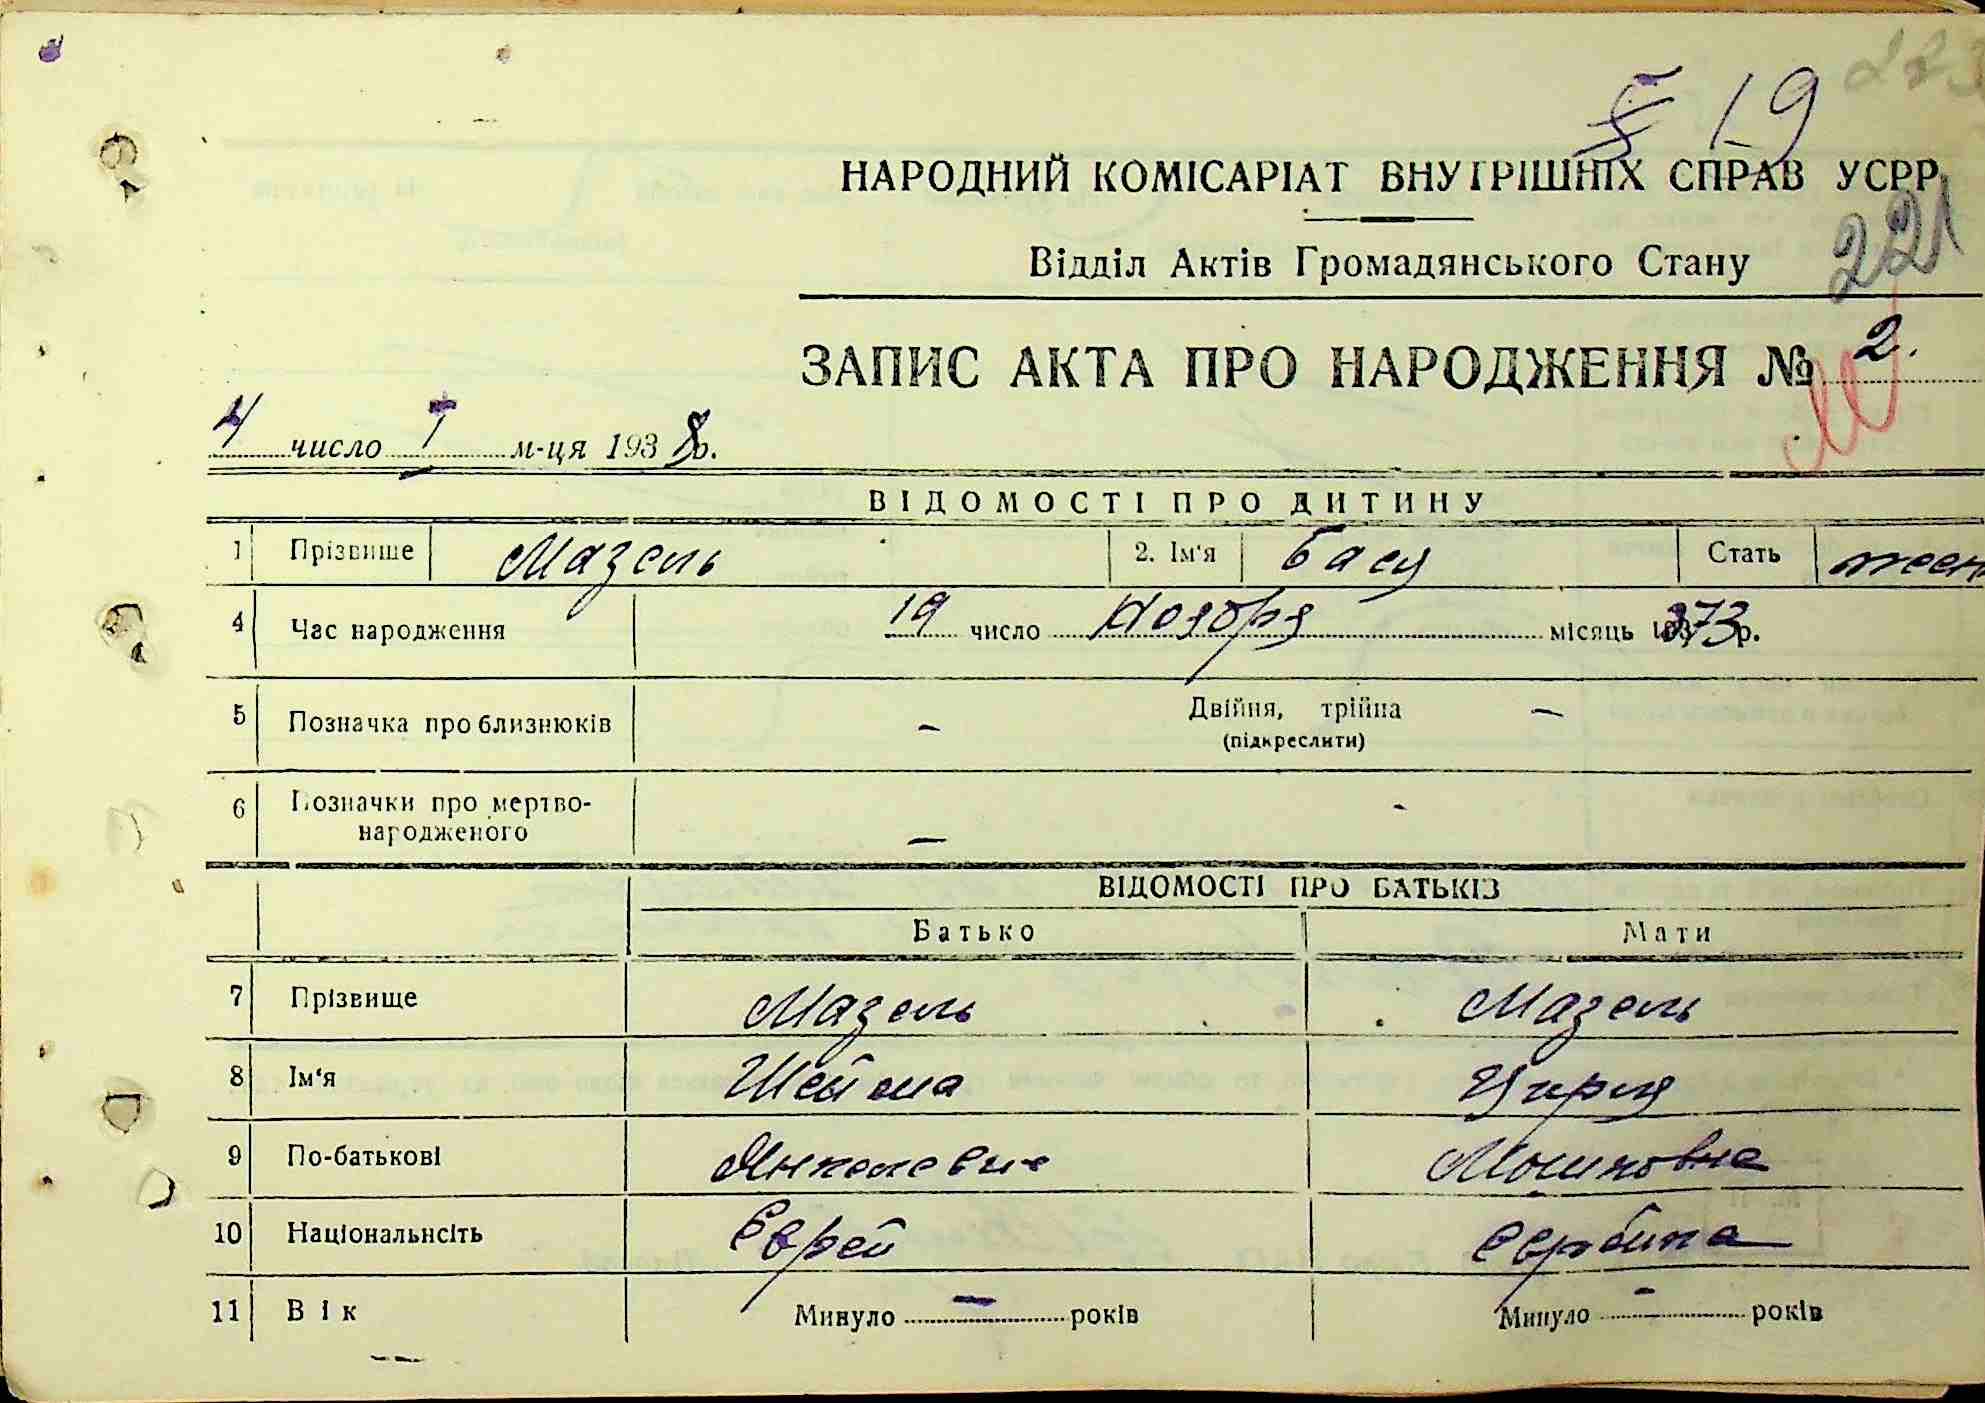 § 19
НАРОДНИЙ КОМІСАРІАТ ВНУТРІШНІХ СПРАВ УСРР
221
Відділ Актів Громадянського Стану
ЗАПИС АКТА ПРО НАРОДЖЕННЯ № 2.
4 число I м-ця 1938 р.
ВІДОМОСТІ ПРО ДИТИНУ
1 Прізвише Мазель 2. Ім'я Бася Стать жен
4 Час народження 19 число Ноября місяць 1873 р.
5 Позначка про близнюків – Двійня, трійна –
(підкреслити)
6 Позначки про мертво-
народженого –
ВІДОМОСТІ ПРО БАТЬКІВ
Батько Мати
7 Прізвище Мазель Мазель
8 Ім'я Шейма Цирля
9 По-батькові Янкелевич Мошковна
10 Національнсіть Еврей еврейка
11 Вік Минуло – років Минуло – років